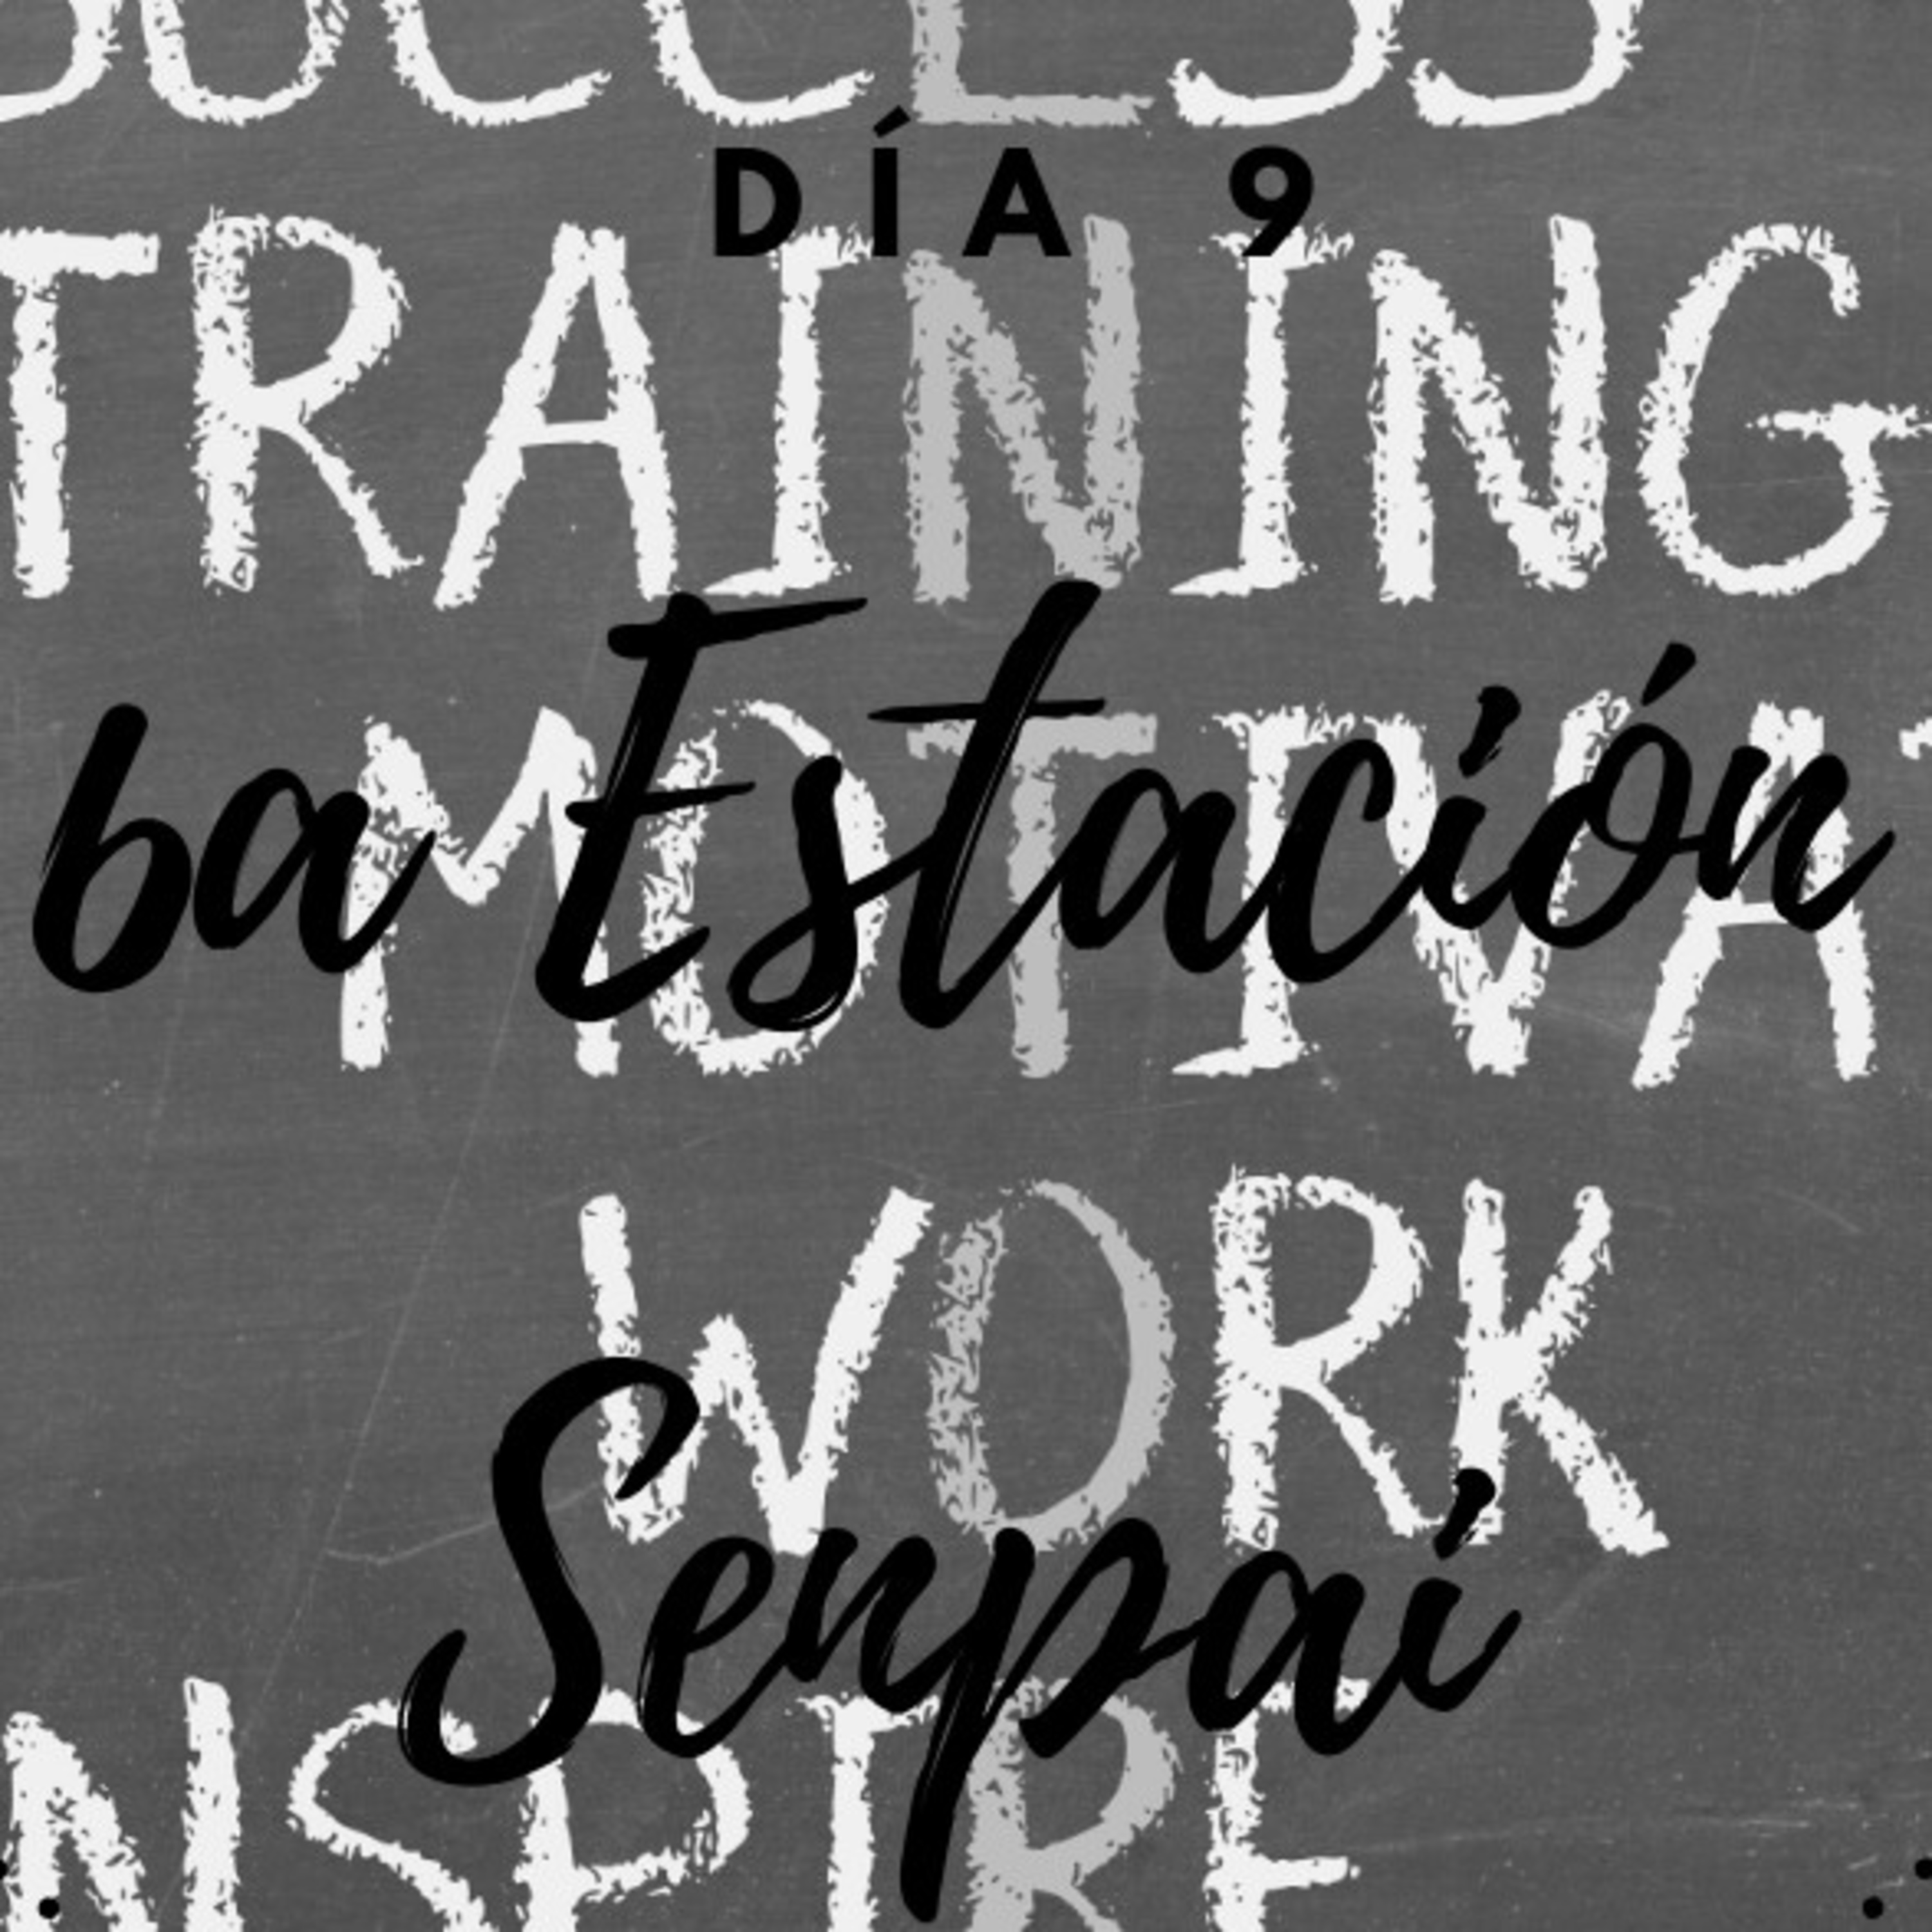 SUCCESS
DÍA 9
TRAINING
6a Estación
MOTIVAT
WORK
Senpai
INSPIRE